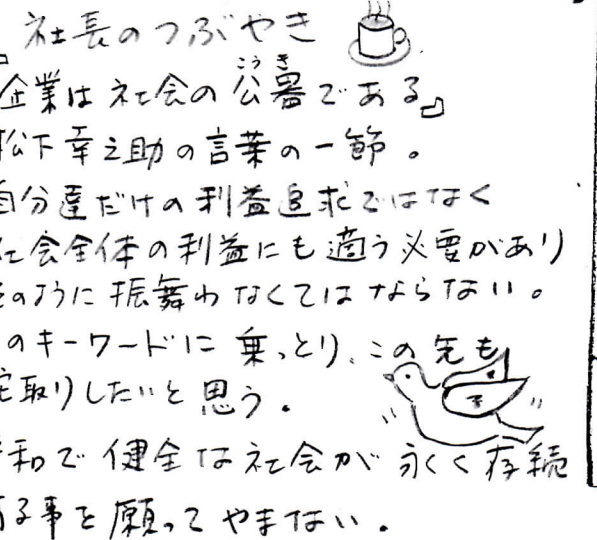 『社長のつぶやき
企業は社会の公器である』
こうき
松下幸之助の言葉の一節。
自分達だけの利益追求ではなく
社会全体の利益にも適う必要があり
そのように振舞わなくてはならない。
のキーワードに乗っとり、この先も
舵取りしたいと思う。
平和で健全な社会が永く存続
する事を願ってやまない。